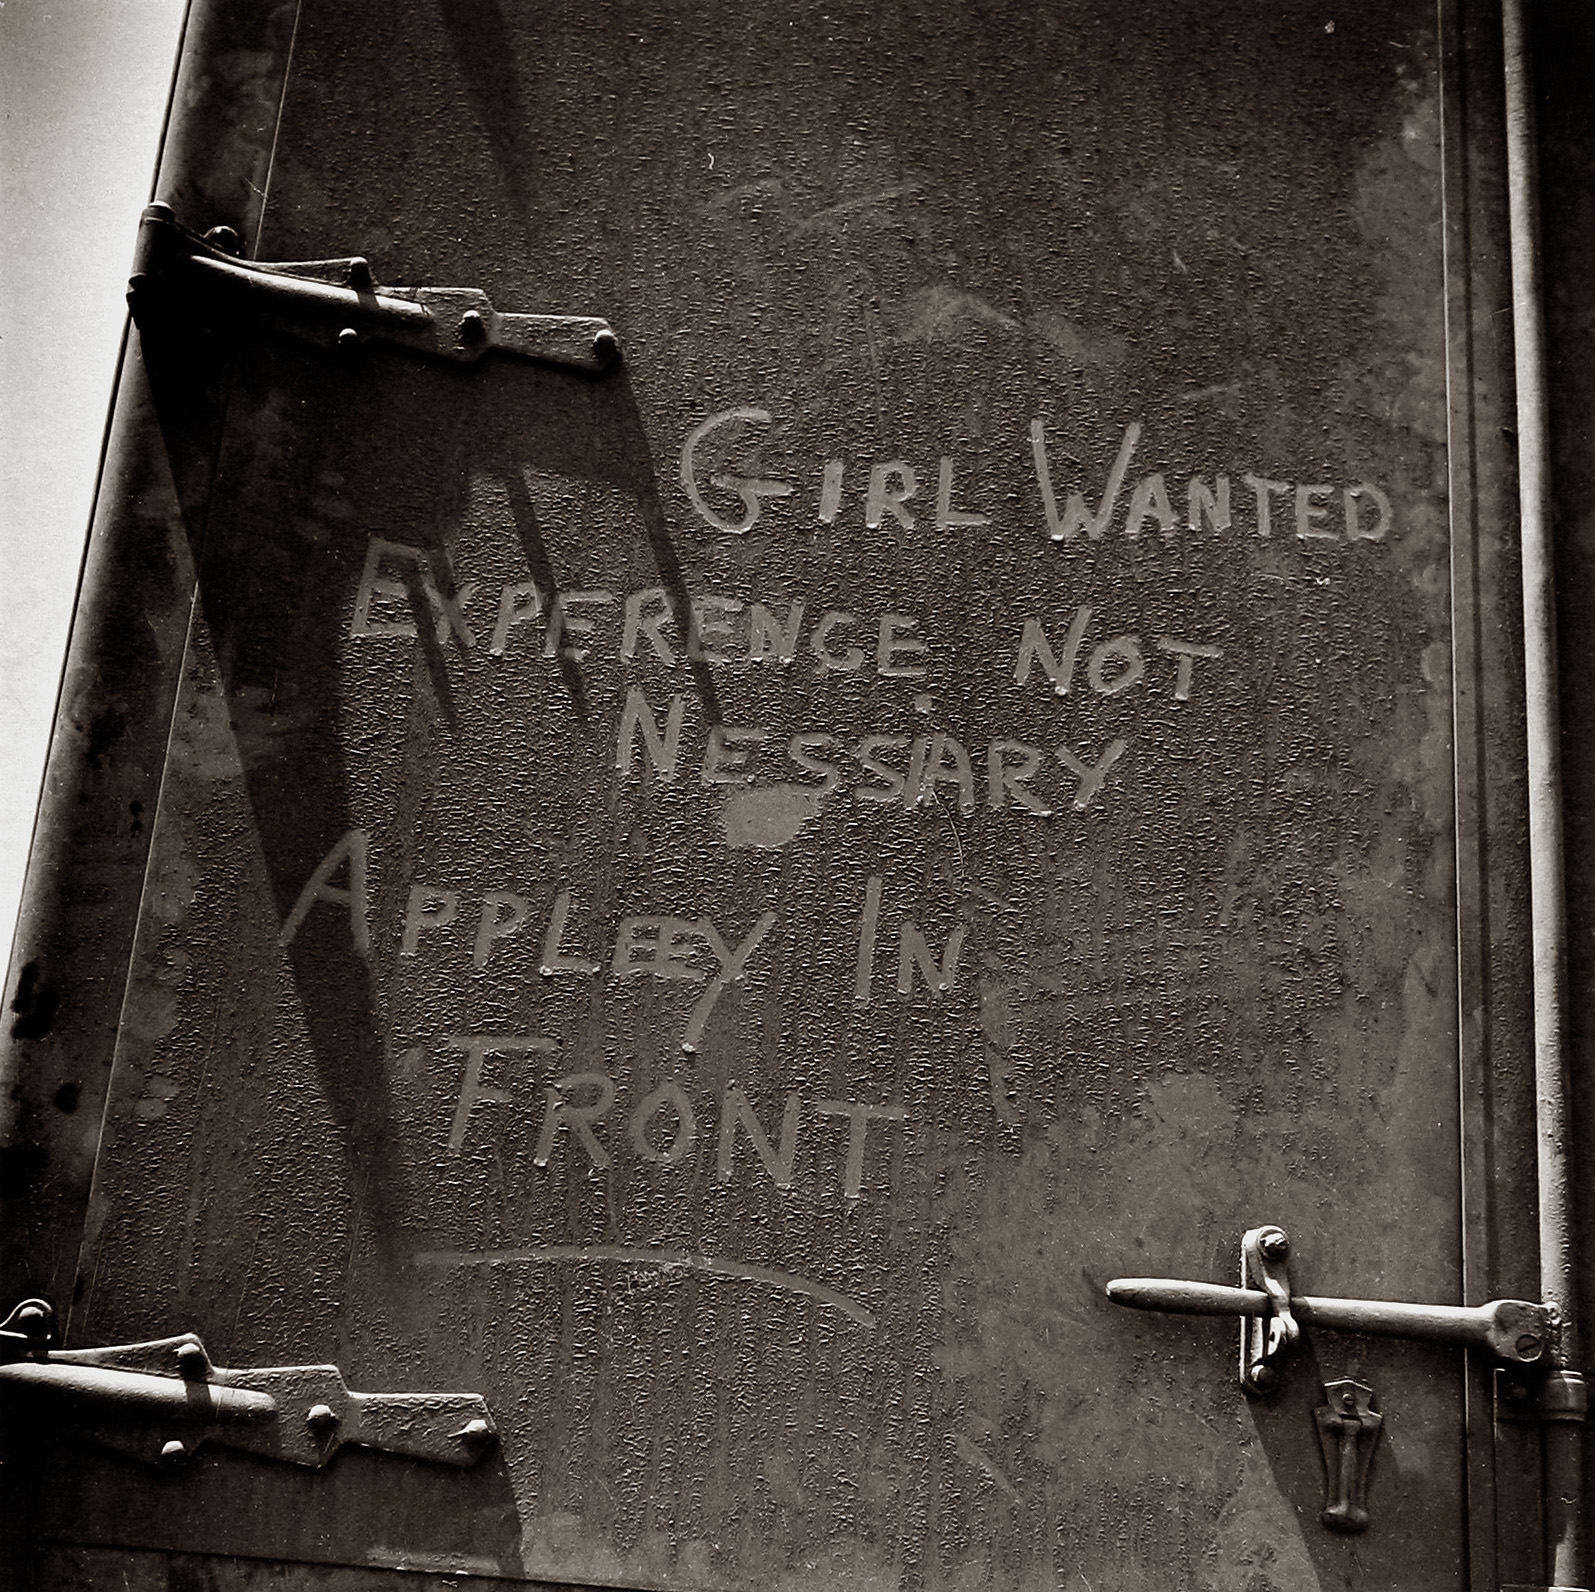 GIRL WANTED
EXPERENCE NOT
NESSIARY
APPLEEY IN
FRONT